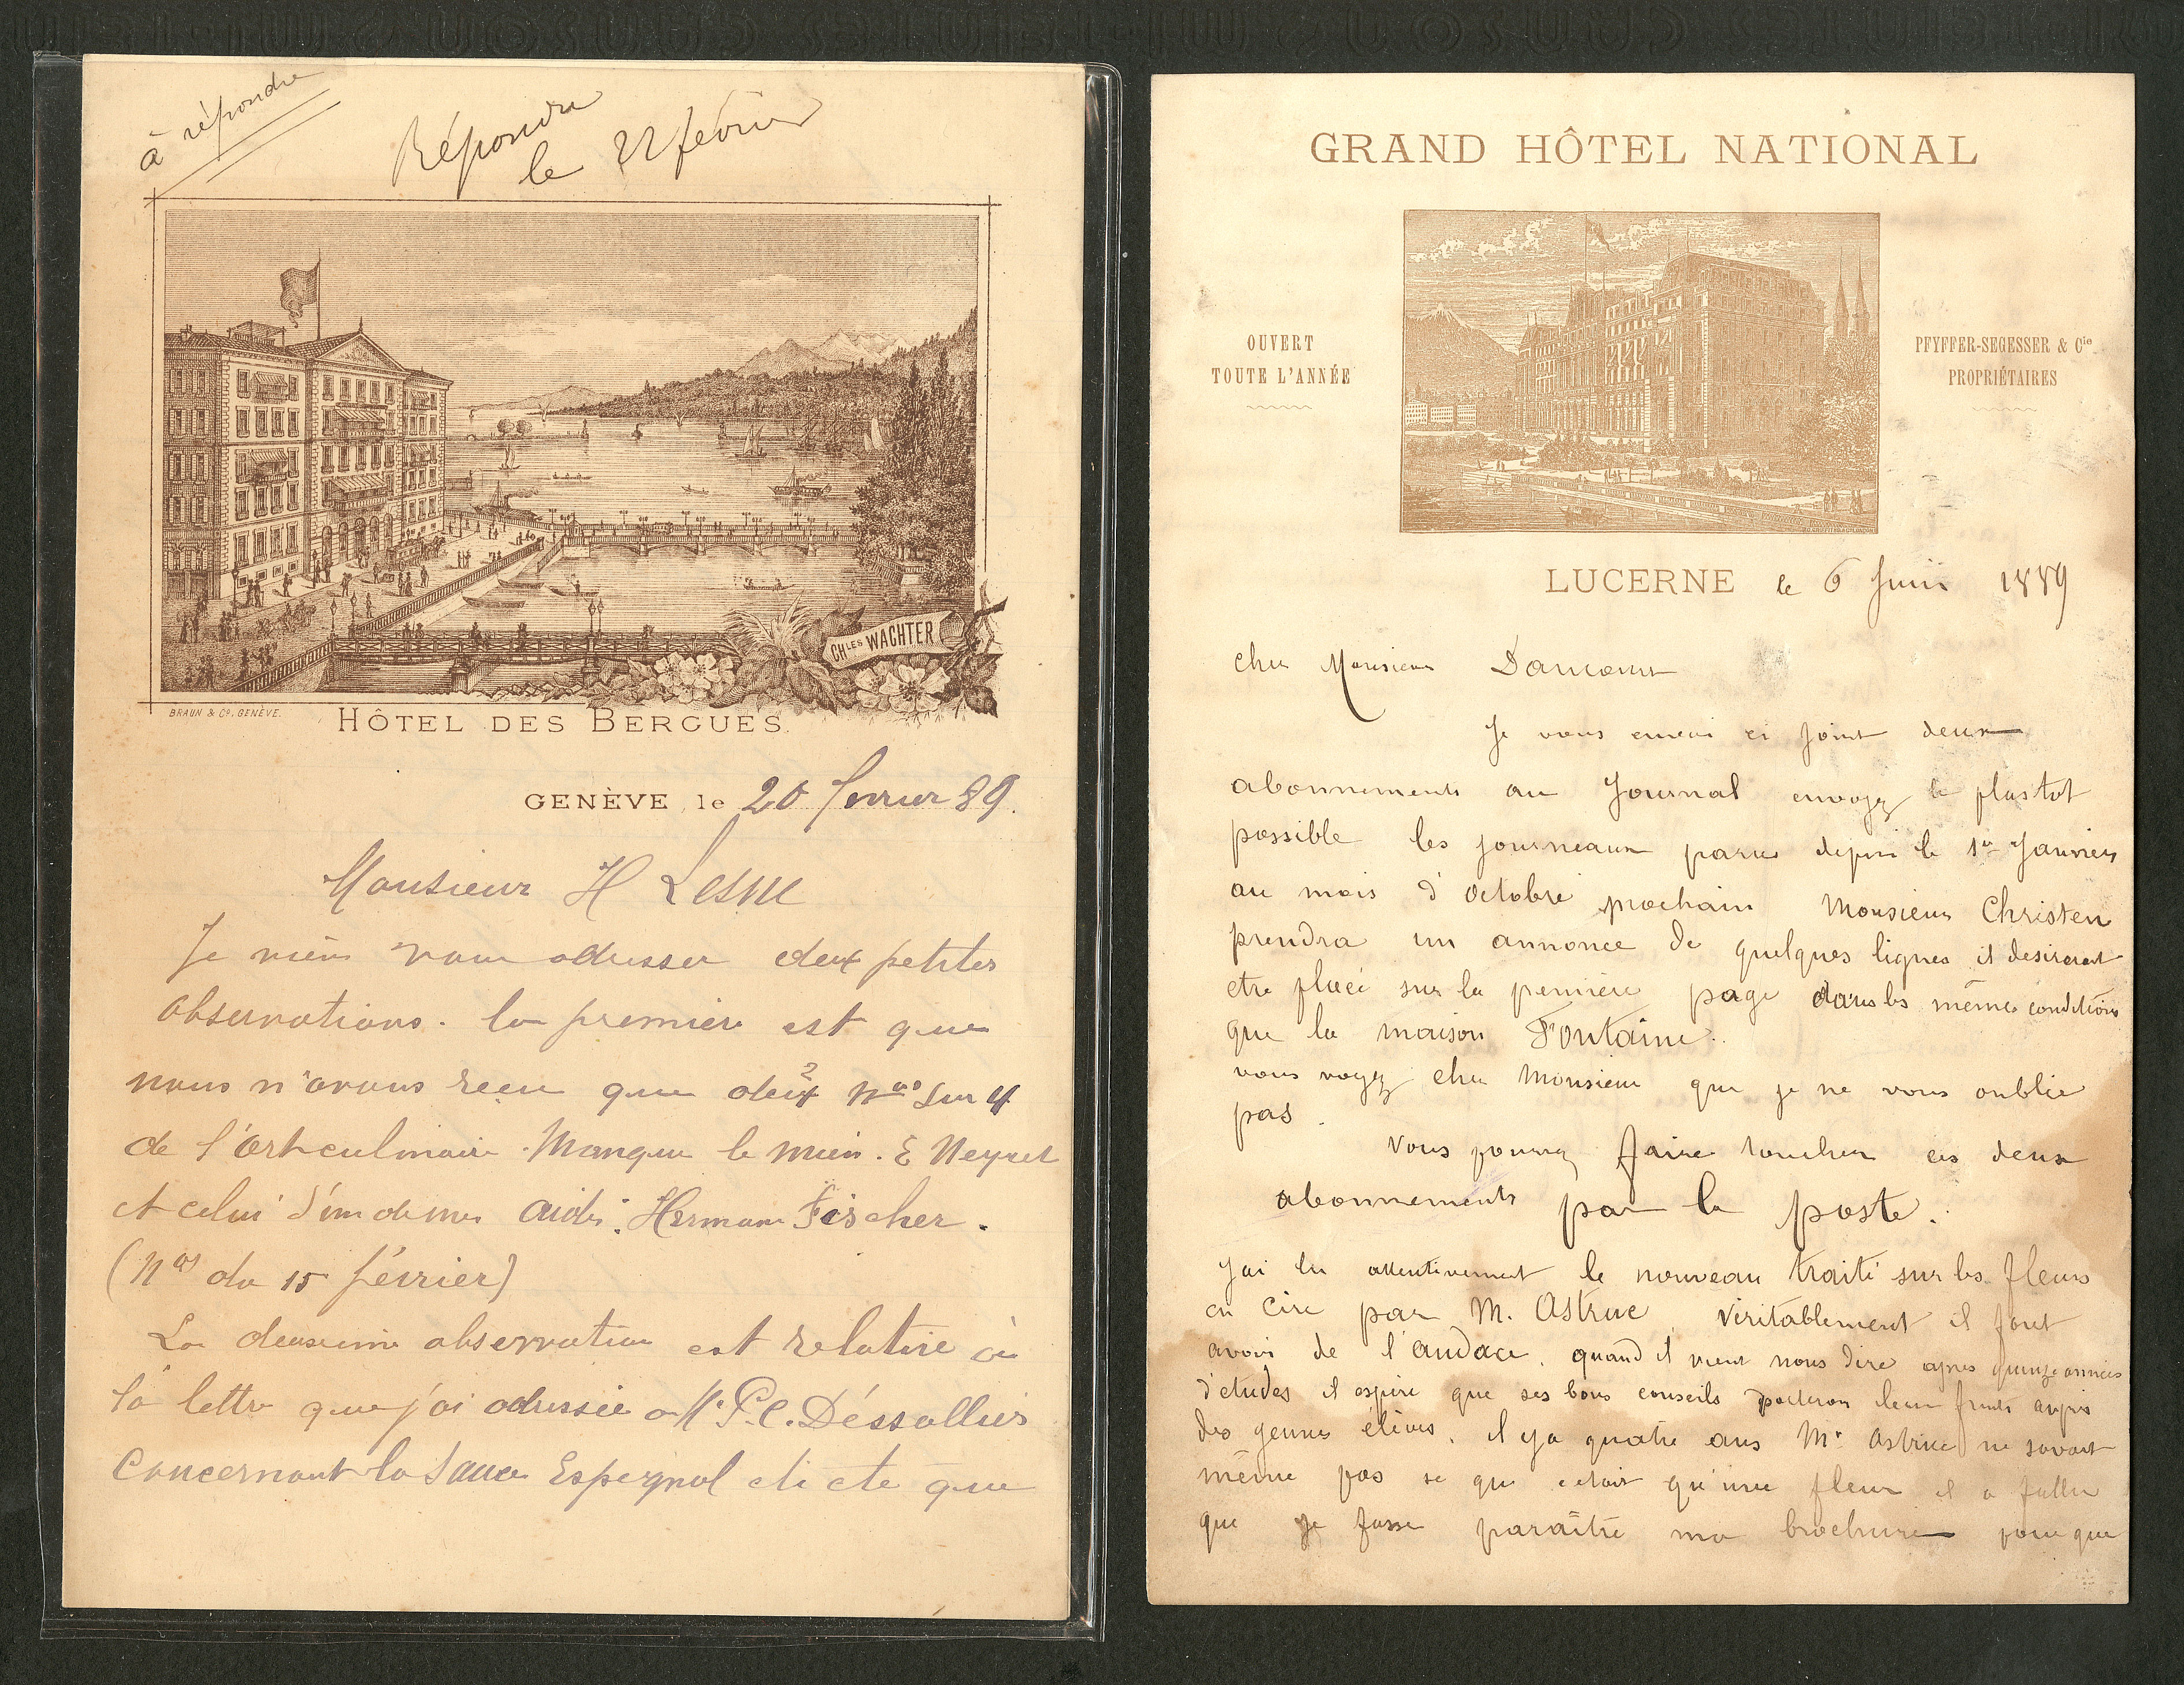 à répondre
Répondu
le 22 février
CHLES WACHTER
BRAUN & Co. GENÈVE.
HÔTEL DES BERGUES.
GENÈVE, le 20 fevrier 89.
Monsieur H Lesne
Je viens vous adresser deux petites
observations. la premiere est que
nous n'avons recu que deux 2 nos sur 4
de l'art culinaire. Manque le mien. E Neyret
et celui d'un de mes aides. Hermann Fischer.
(Nos du 15 février)
La deuxieme observation est relative à
la lettre que j'ai adressée a Mr P.C. Déssalliés
Concernant la Sauce Espagnol eti ete que
GRAND HÔTEL NATIONAL
OUVERT
TOUTE L'ANNÉE
PFYFFER-SEGESSER & Cie
PROPRIÉTAIRES
LUCERNE le 6 Juin 1889
cher Monsieur Dancourt
Je vous envoi ci joint deux
abonnements au Journal envoyez le plustot
possible les journeaux parus depuis le 1er Janvier
au mois d'octobre prochain Monsieur Christen
prendra un annonce de quelques lignes il desirerait
etre placé sur la premiere page dans les mêmes conditions
que la maison Fontaine.
vous voyez cher Monsieur que je ne vous oublie
pas.
Vous pourrez faire toucher ces deux
abonnements par la poste.
J'ai lu attentivement le nouveau traité sur les fleurs
en cire par M. Astruc. Veritablement il faut
avoir de l'audace, quand il vient nous dire apres quinze années
d'etudes il espère que ses bons conseils porteron leur fruits aupres
des jeunes élèves, il y a quatre ans Mr Astruc ne savait
même pas se que cetait qu'une fleur il a fallu
que je fasse paraître ma brochure pour que